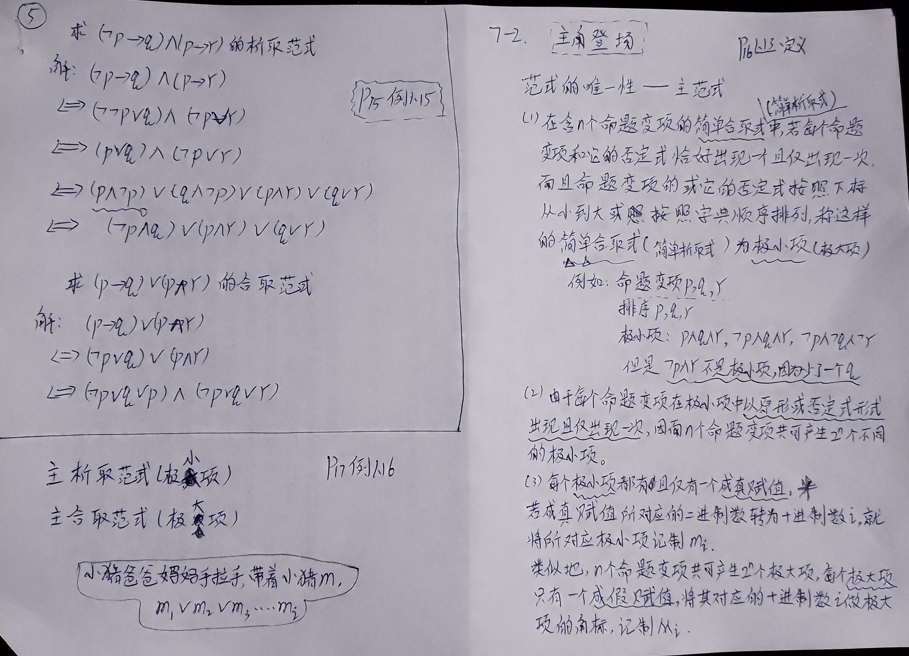 ⑤
求 (¬p→q)∧(p→r) 的析取范式
解: (¬p→q)∧(p→r)
P15 例1.15
⇔ (¬¬p∨q)∧(¬p∨r)
⇔ (p∨q)∧(¬p∨r)
⇔ (p∧¬p)∨(q∧¬p)∨(p∧r)∨(q∨r)
⇔ (¬p∧q)∨(p∧r)∨(q∨r)
求 (p→q)∨(p∧r) 的合取范式
解: (p→q)∨(p∧r)
⇔ (¬p∨q)∨(p∧r)
⇔ (¬p∨q∨p)∧(¬p∨q∨r)
主析取范式(极小项)
P17 例1.16
主合取范式(极大项)
小猪爸爸妈妈手拉手,带着小猪m,
m₁∨m₂∨m₃……mᵢ
7-2. 主角登场
P16 1.13 定义
范式的唯一性——主范式
(简单析取式)
(1) 在含n个命题变项的简单合取式中,若每个命题
变项和它的否定式恰好出现一个且仅出现一次.
而且命题变项的或它的否定式按照下标
从小到大或 按照字典顺序排列,称这样
的简单合取式(简单析取式)为极小项(极大项)
例如: 命题变项p,q,r
排序p,q,r
极小项: p∧q∧r, ¬p∧q∧r, ¬p∧¬q∧¬r
但是 ¬p∧r 不是极小项,因为少了一个q
(2) 由于每个命题变项在极小项中以原形或否定式形式
出现且仅出现一次,因而n个命题变项共可产生2ⁿ个不同
的极小项。
(3) 每个极小项都有且仅有一个成真赋值,
若成真赋值所对应的二进制数转为十进制数i,就
将所对应极小项记制mᵢ.
类似地,n个命题变项共可产生2ⁿ个极大项,每个极大项
只有一个成假赋值,将其对应的十进制数i做极大
项的角标,记制Mᵢ.